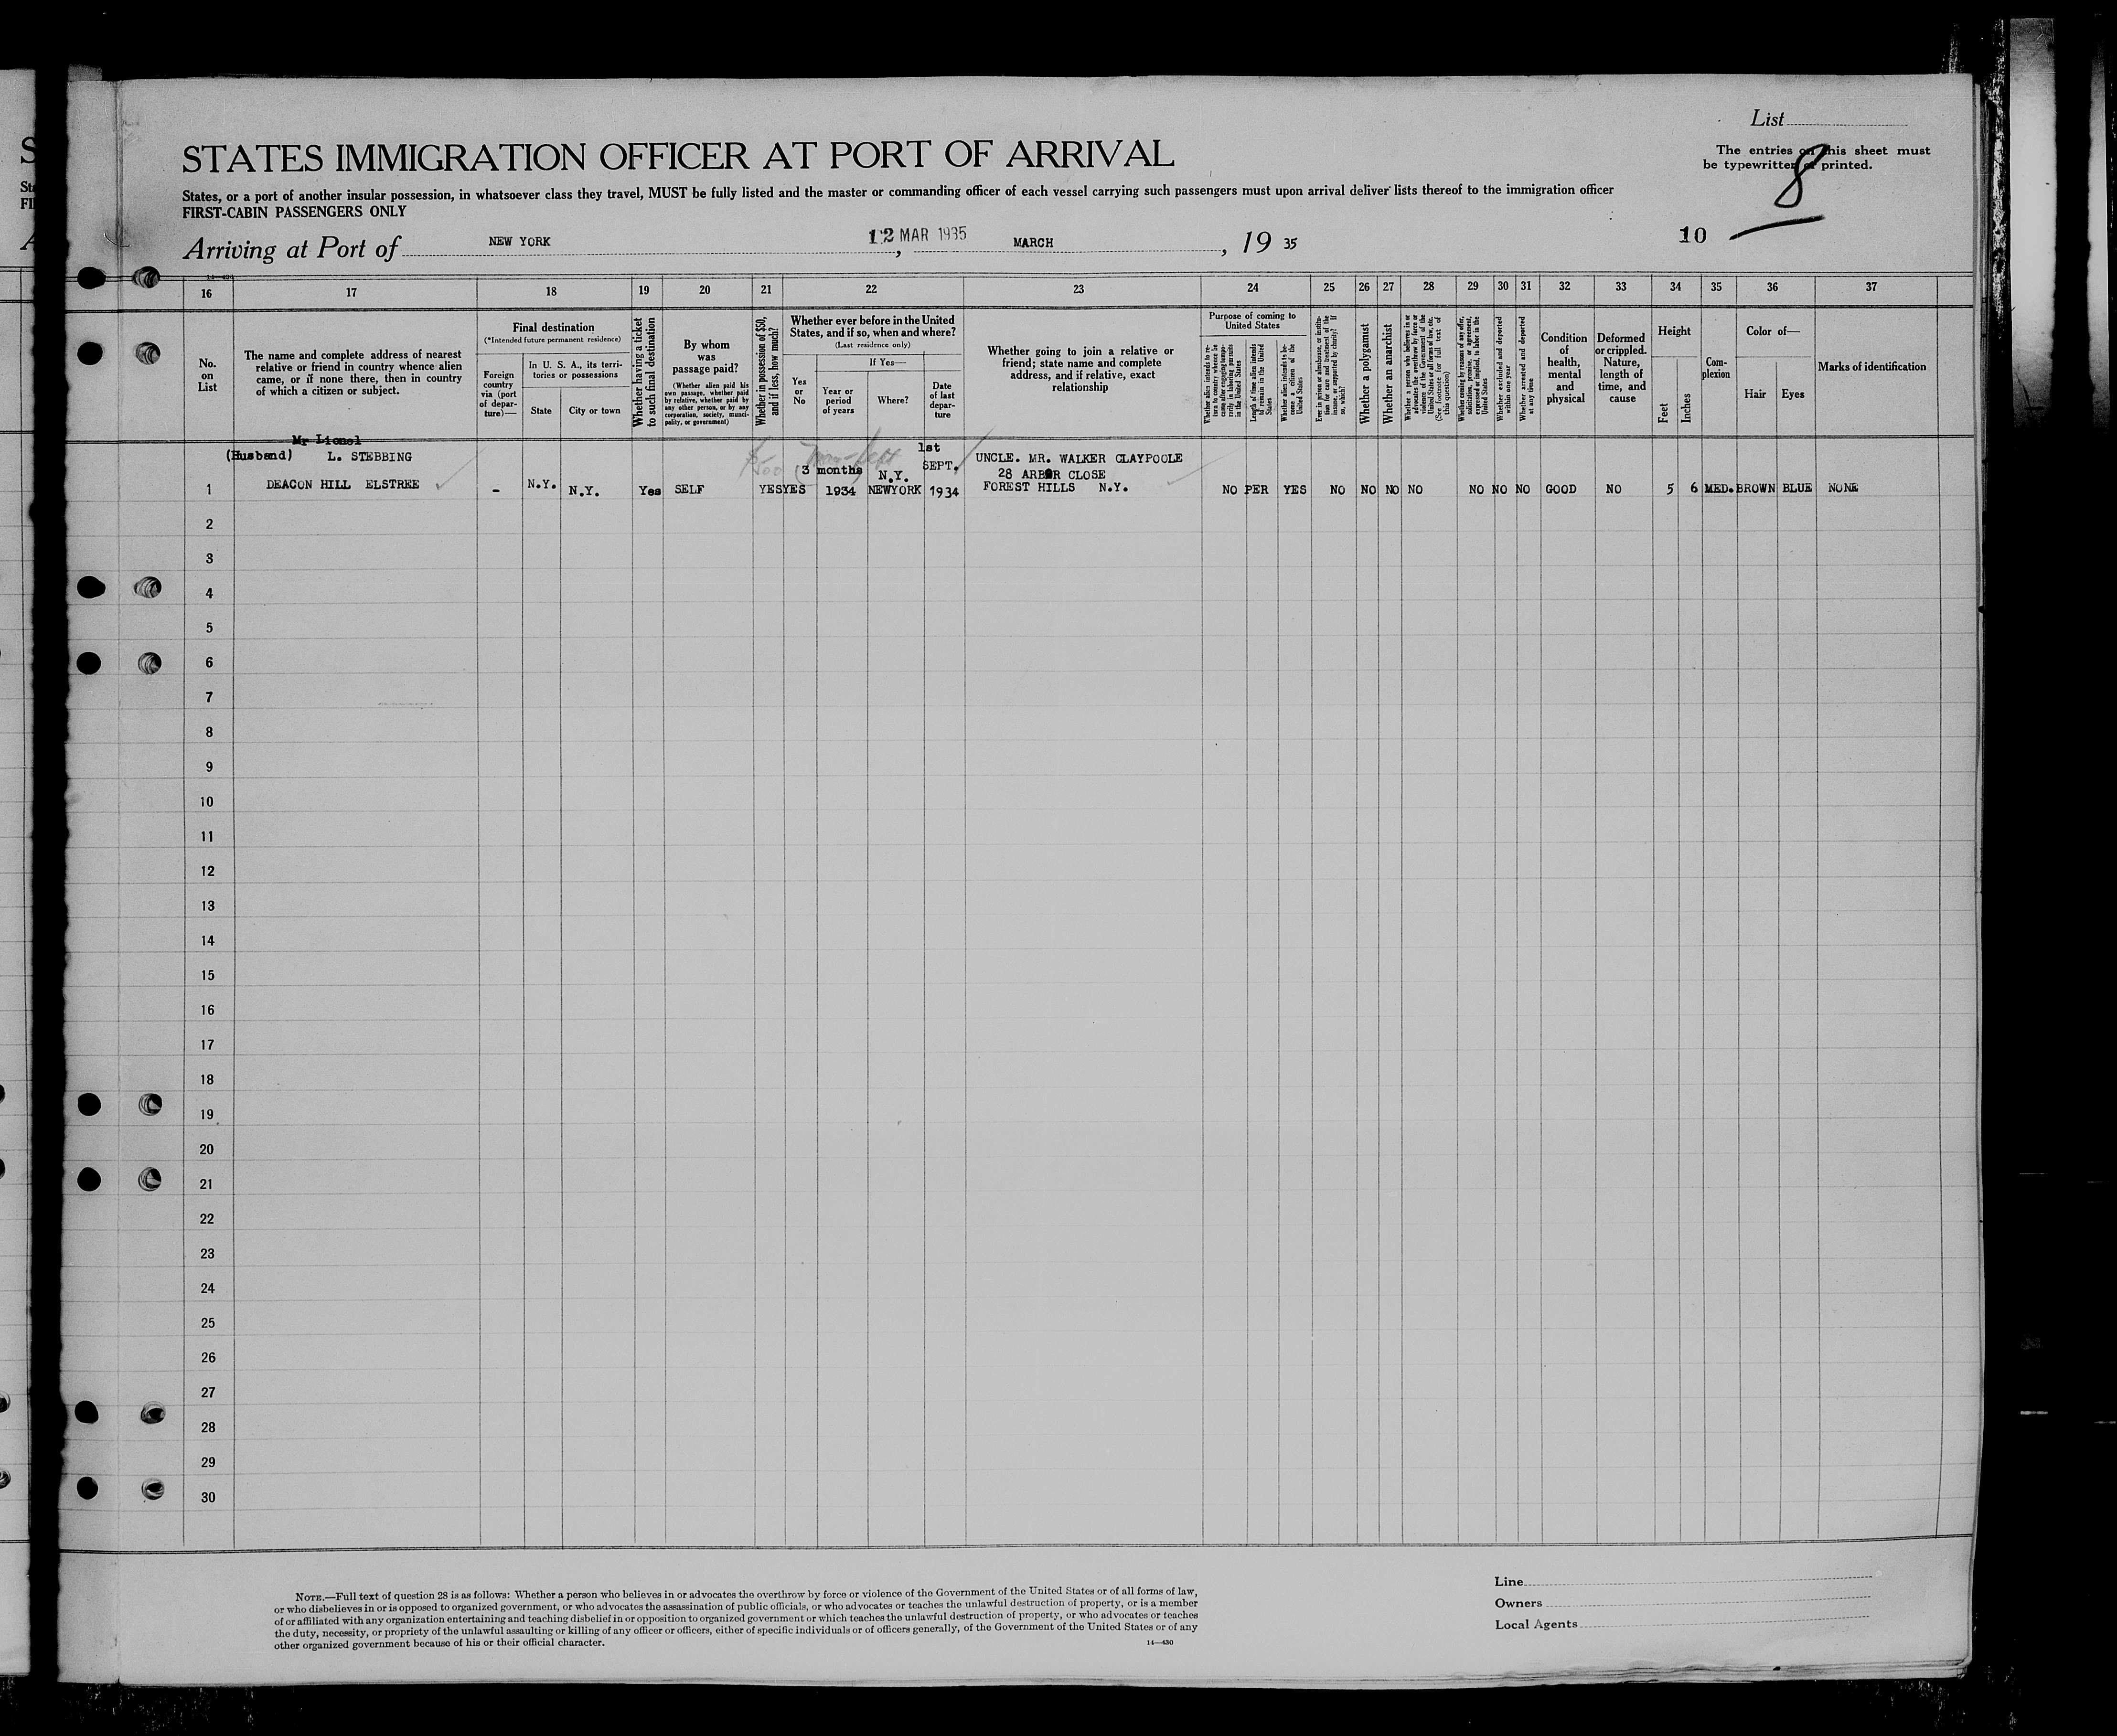 List
STATES IMMIGRATION OFFICER AT PORT OF ARRIVAL
The entries on this sheet must
be typewritten or printed.
8
States, or a port of another insular possession, in whatsoever class they travel, MUST be fully listed and the master or commanding officer of each vessel carrying such passengers must upon arrival deliver lists thereof to the immigration officer
FIRST-CABIN PASSENGERS ONLY
Arriving at Port of NEW YORK, 12 MAR 1935 MARCH, 19 35
10
16 17 18 19 20 21 22 23 24 25 26 27 28 29 30 31 32 33 34 35 36 37
No.
on
List
The name and complete address of nearest
relative or friend in country whence alien
came, or if none there, then in country
of which a citizen or subject.
Final destination
(*Intended future permanent residence)
Foreign
country
via (port
of depar-
ture)—
In U. S. A., its terri-
tories or possessions
State
City or town
Whether having a ticket
to such final destination
By whom
was
passage paid?
(Whether alien paid his
own passage, whether paid
by relative, whether paid by
any other person, or by any
corporation, society, munici-
pality, or government)
Whether in possession of $50,
and if less, how much?
Whether ever before in the United
States, and if so, when and where?
(Last residence only)
Yes
or
No
If Yes—
Year or
period
of years
Where?
Date
of last
depar-
ture
Whether going to join a relative or
friend; state name and complete
address, and if relative, exact
relationship
Purpose of coming to
United States
Length of time alien intends
to remain in the United
States
Whether alien intends to be-
come a citizen of the
United States
Whether a polygamist
Whether an anarchist
Whether excluded and deported
within one year
Whether arrested and deported
at any time
Condition
of
health,
mental
and
physical
Deformed
or crippled.
Nature,
length of
time, and
cause
Height
Feet
Inches
Com-
plexion
Color of—
Hair
Eyes
Marks of identification
Mr Lionel
(Husband) L. STEBBING
DEACON HILL ELSTREE
1 - N.Y. N.Y. Yes SELF YES YES
(3 months
1934
N.Y.
NEWYORK
1st
SEPT.
1934
UNCLE. MR. WALKER CLAYPOOLE
28 ARBOR CLOSE
FOREST HILLS N.Y.
NO PER YES NO NO NO NO NO NO NO GOOD NO 5 6 MED. BROWN BLUE NONE
2
3
4
5
6
7
8
9
10
11
12
13
14
15
16
17
18
19
20
21
22
23
24
25
26
27
28
29
30
NOTE.—Full text of question 28 is as follows: Whether a person who believes in or advocates the overthrow by force or violence of the Government of the United States or of all forms of law,
or who disbelieves in or is opposed to organized government, or who advocates the assassination of public officials, or who advocates or teaches the unlawful destruction of property, or is a member
of or affiliated with any organization entertaining and teaching disbelief in or opposition to organized government or which teaches the unlawful destruction of property, or who advocates or teaches
the duty, necessity, or propriety of the unlawful assaulting or killing of any officer or officers, either of specific individuals or of officers generally, of the Government of the United States or of any
other organized government because of his or their official character.
14—430
Line
Owners
Local Agents